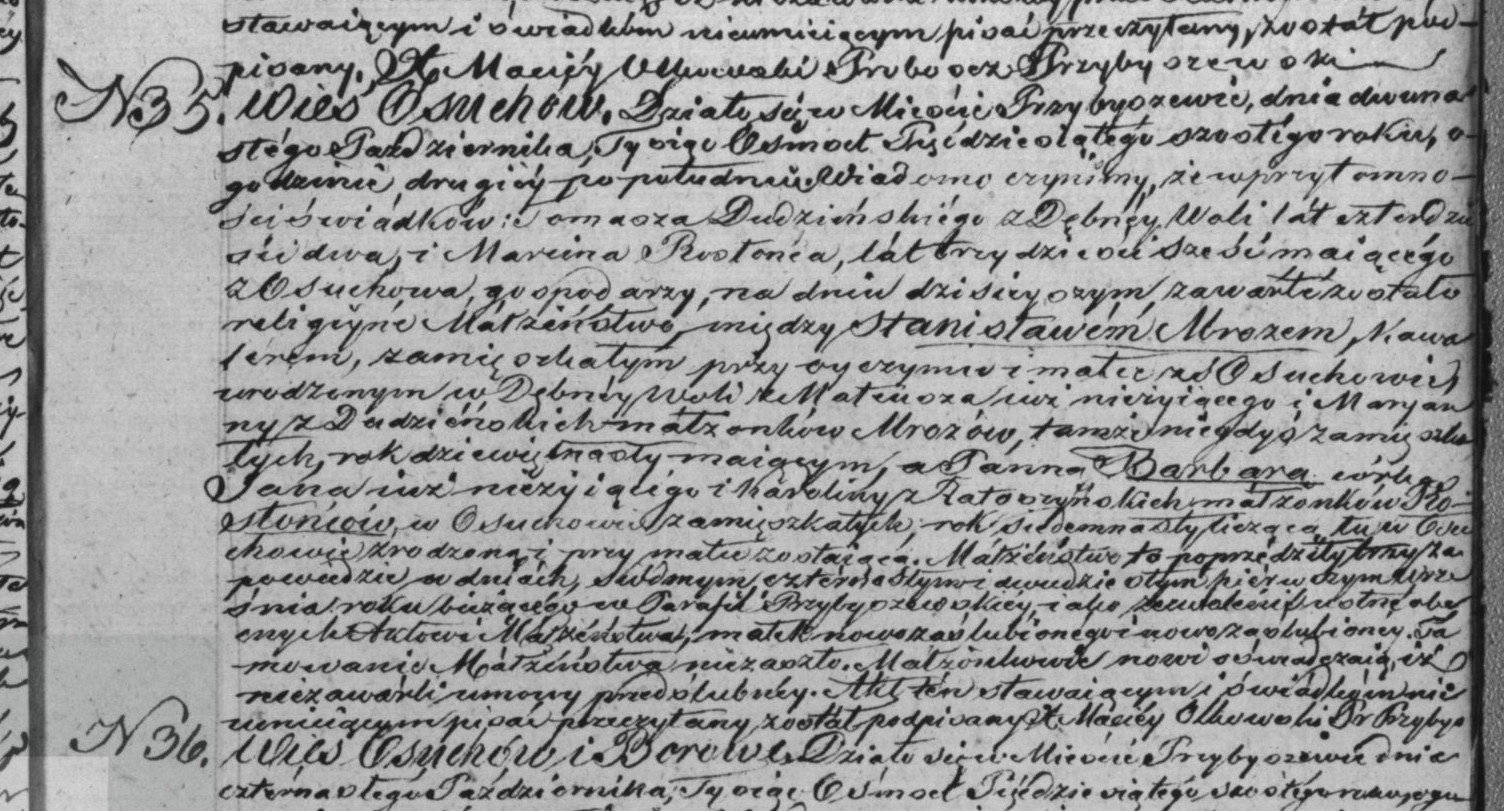 stawaiącym i świadkom nieumieiącym pisać przeczytany, został pod-
pisany. X. Maciéy Olkowski Proboszcz Przybyszewski
N35. Wieś Osuchów. Działo się w Mieście Przybyszewie, dnia dwuna-
stégo Października, Tysiąc Ośmset Pięćdziesiątego szostégo roku, o-
godzinie drugiéy po południu. Wiadomo czynimy, że w przytomno-
ści świádków: Tomasza Dudzińskiégo z Dębnéy Woli lát czterdzie
ści dwa, i Marcina Rostońca, lát trzydzieści sześć maiącégo
z Osuchowa, gospodarzy, na dniu dzisieyszym, zawarté zostało
religiyné Małżéństwo, między Stanisławém Mrozem, Kawa
lérem, zamięszkałym przy oyczymie i matce w Osuchowie,
urodzonym w Dębnéy Woli z Mateusza iuż nieżyiącego i Maryan
ny z Dudzińskich małżonków Mrozów, tamże niegdyś zamięszka
łych, rok dziewiętnasty maiącym, a Panną Barbarą córką
Jana iuż nieżyiącégo i Karoliny z Ratoszyńskich małżonków Ro-
stońców, w Osuchowie zamięszkałych, rok siedemnasty liczącą, tu w Osu
chowie zrodzoną i przy matce zostaiącą. Małżéństwo to poprzédziły trzy za
powiedzie w dniách, siódmym czternastym i dwudziestym piérwszym Wrze
śnia roku bieżącégo w Parafii Przybyszewskiéy, i ako zezwolenié ustné obe
cnych Aktowi Małżéństwa, matek nowozaślubionégo i nowozaślubionéy. Ta
mowanie Małżéństwa niezaszło. Małżonkowie nowi oświadczaią, iż
niezawárli umowy przedślubnéy. Akt tén stawaiącym i świádkóm nie
umieiącym pisać przeczytany, został podpisany X. Maciéy Olkowski Pr Przybys
N36. Wieś Osuchów i Borowe. Działo się w Mieście Przybyszewie dnia
czternastégo Października, Tysiąc Ośmset Pięćdziesiątego szóstégo roku, o go